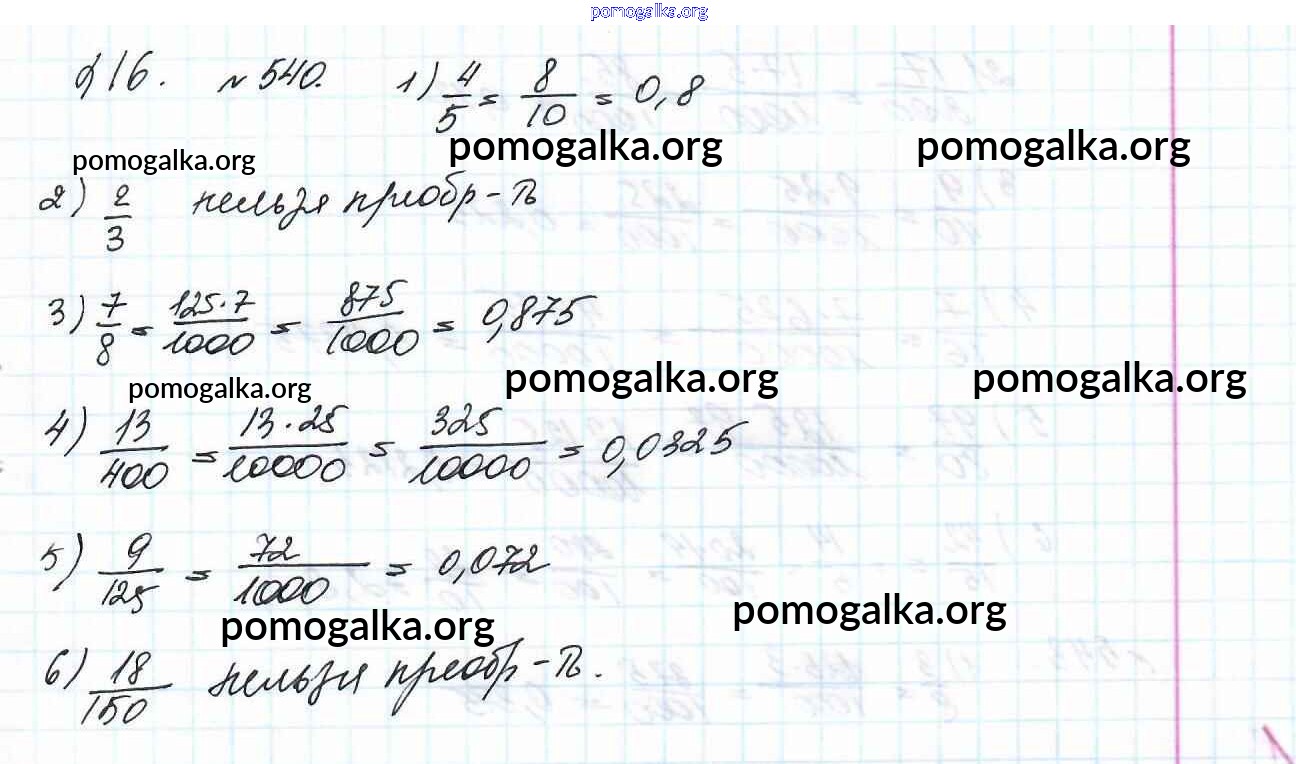 pomogalka.org
§16. №540. 1) 4/5 = 8/10 = 0,8
pomogalka.org pomogalka.org pomogalka.org
2) 2/3 нельзя преобр-ть
3) 7/8 = 125·7/1000 = 875/1000 = 0,875
pomogalka.org pomogalka.org pomogalka.org
4) 13/400 = 13·25/10000 = 325/10000 = 0,0325
5) 9/125 = 72/1000 = 0,072
pomogalka.org pomogalka.org
6) 18/150 нельзя преобр-ть.